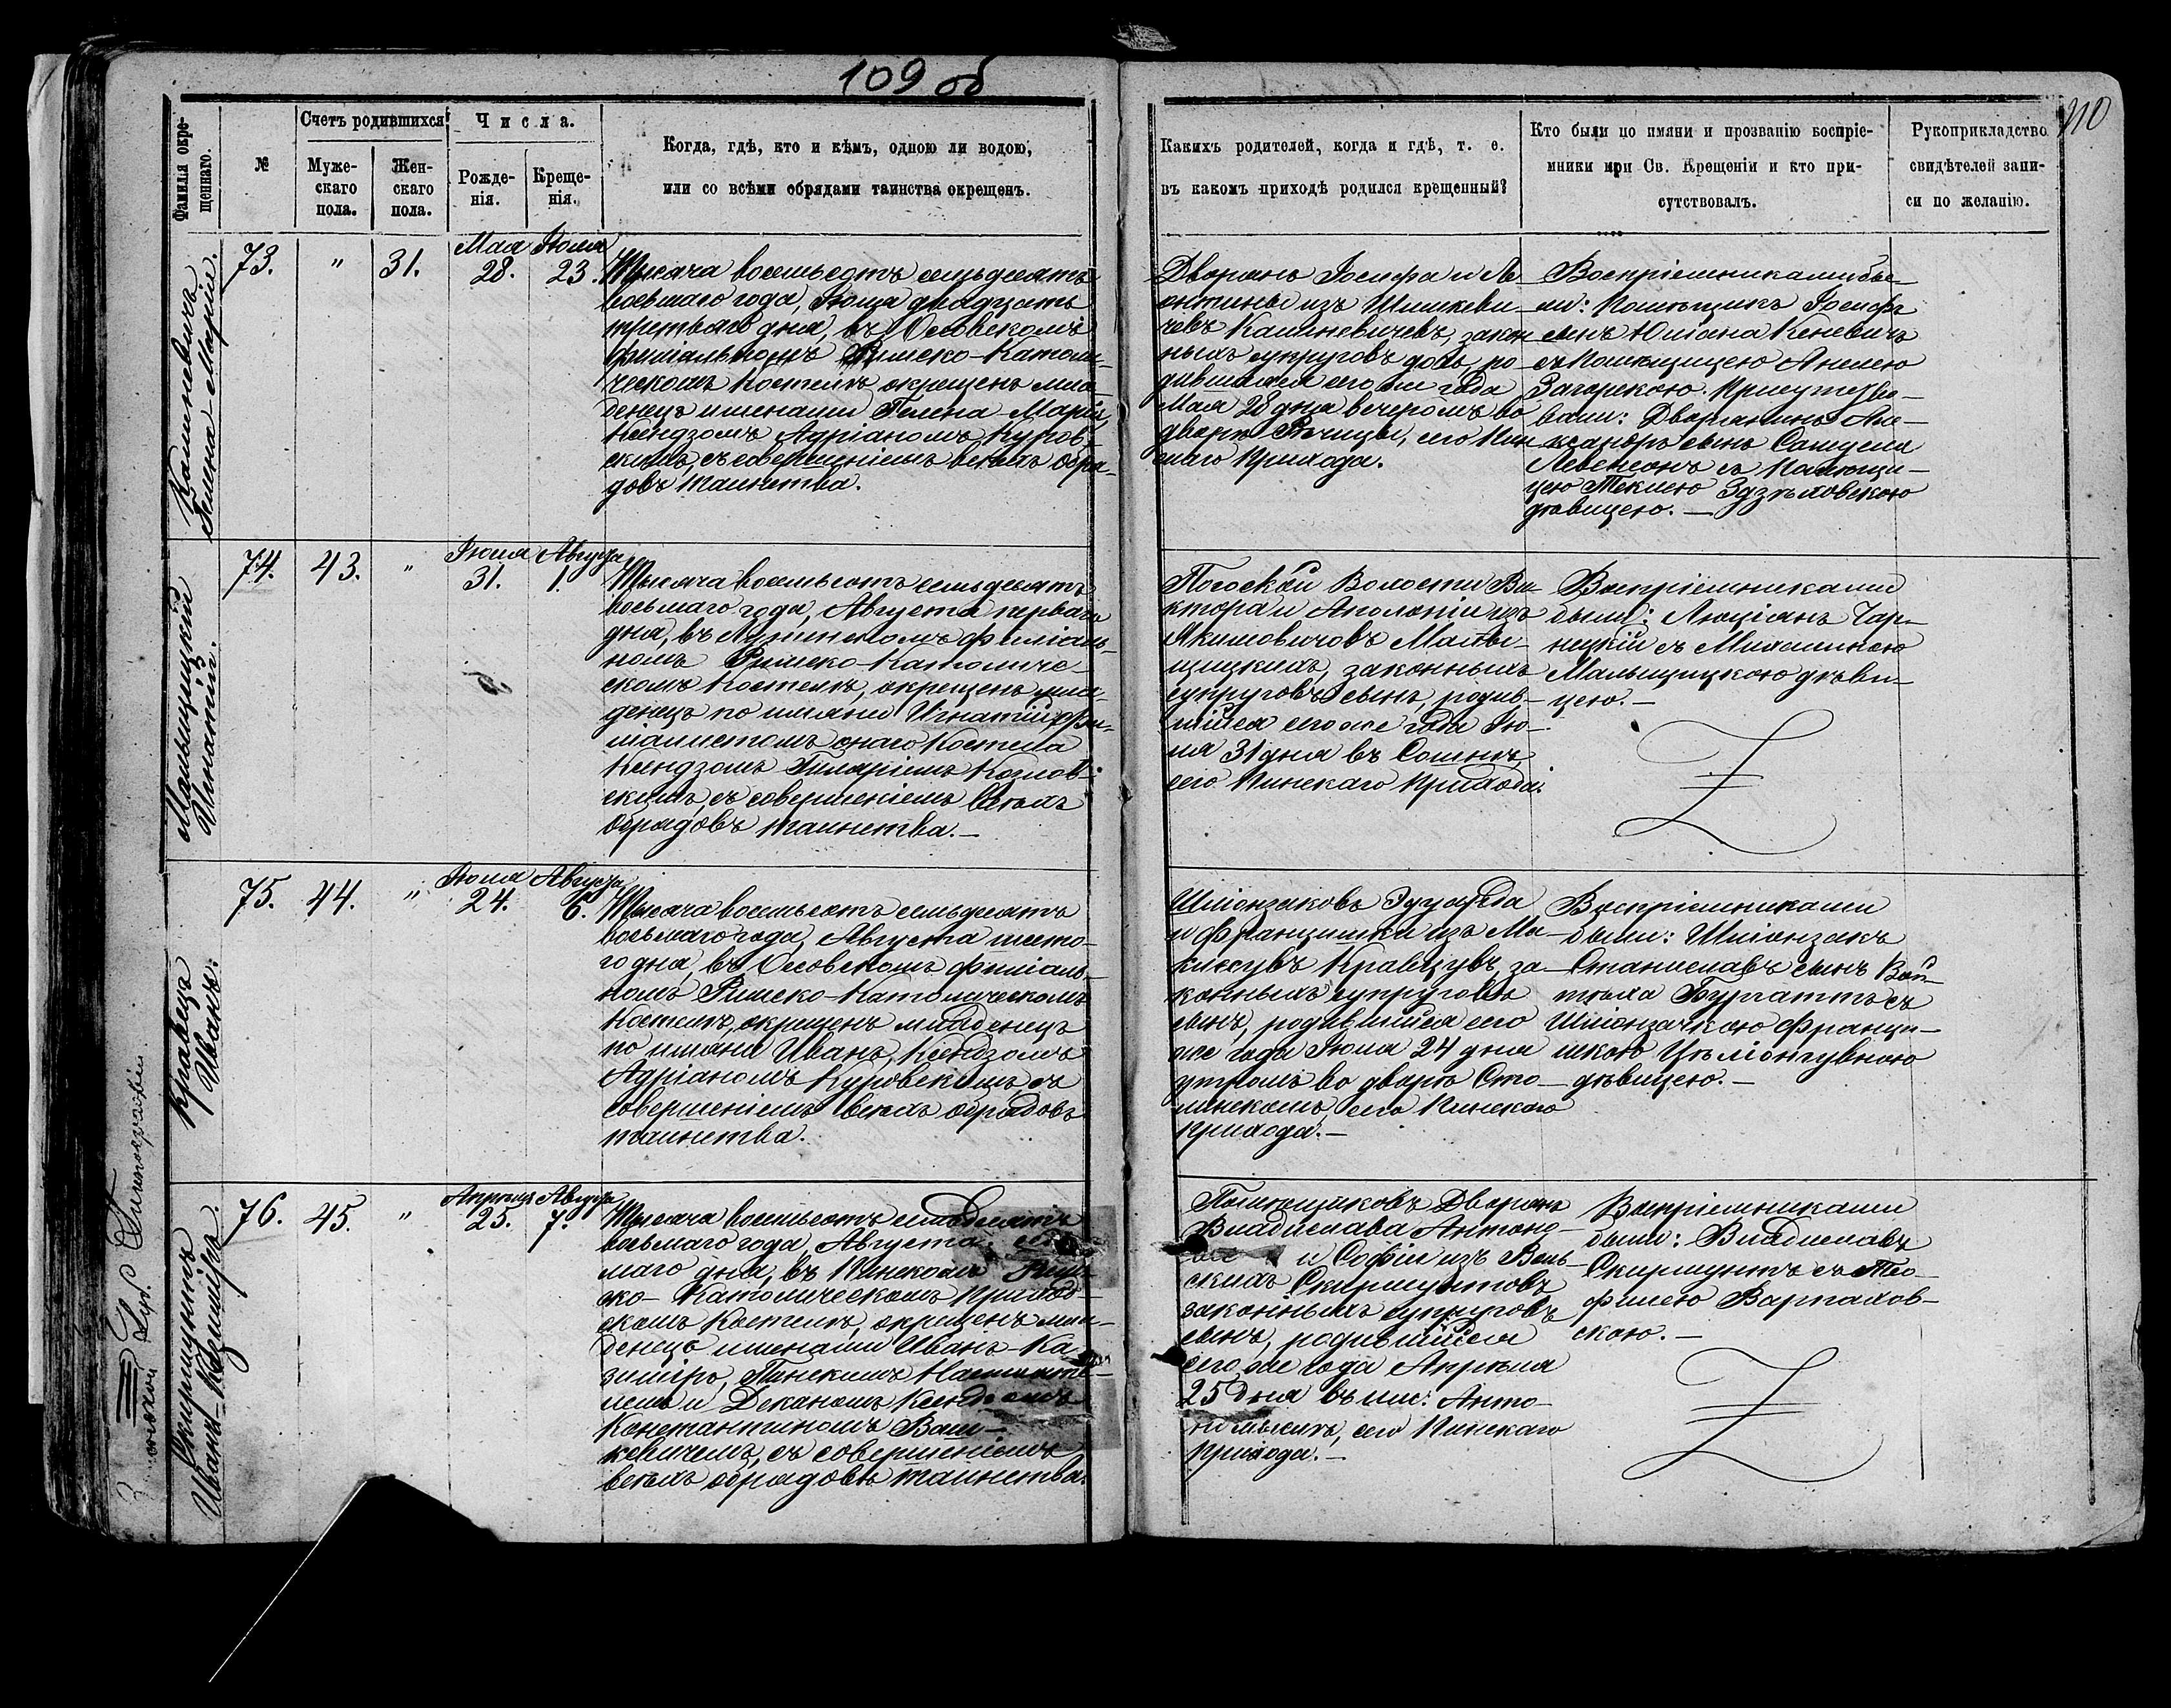 109 об
110
Фамилія окре-
щеннаго.
№
Счетъ родившихся
Муже-
скаго
пола.
Жен-
скаго
пола.
Числа.
Рожде-
нія.
Креще-
нія.
Когда, гдѣ, кто и кѣмъ, одною ли водою,
или со всѣми обрядами таинства окрещенъ.
Какихъ родителей, когда и гдѣ, т. е.
въ какомъ приходѣ родился крещенный?
Кто были по имяни и прозванію воспріе-
мники при Св. Крещеніи и кто при-
сутствовалъ.
Рукоприкладство
свидѣтелей запи-
си по желанію.
Калиневичъ
Гелена-Марія.
73.
"
31.
Мая
28.
Іюля
23.
Тысяча восемьсотъ семьдесятъ
восьмаго года, Іюля двадцать
третьяго дня, въ Осовскомъ
филіальномъ Римско-Католи-
ческомъ Костелѣ, окрещенъ мла-
денецъ именами Гелена-Марія,
Ксендзомъ Адріаномъ Куров-
скимъ, съ совершеніемъ всѣхъ обря-
довъ таинства.
Дворянъ Іосифа и Ле-
онтины изъ Шишкеви-
чевъ Калиневичевъ, закон-
ныхъ супруговъ дочь, ро-
дившаяся сего же года
Мая 28 дня вечеромъ во
дворѣ Рѣчицы, сего Пин-
скаго прихода.
Воспріемниками бы-
ли: Помѣщикъ Іосифъ
сынъ Юліана Кеневичъ
съ Помѣщицею Анелею
Загорскою. Присутство-
вали: Дворянинъ Але-
ксандръ сынъ Самуеля
Левенсонъ съ Помѣщи-
цею Теклею Здзѣховскою
дѣвицею.—
Мальщицкій
Игнатій.
74.
43.
"
Іюля
31.
Августа
1.
Тысяча восемьсотъ семьдесятъ
восьмаго года, Августа перваго
дня, въ Лушинскомъ филіаль-
номъ Римско-Католиче-
скомъ Костелѣ, окрещенъ мла-
денецъ по имяни Игнатій, фи-
лиалистомъ онаго Костела
Ксендзомъ Гиляріемъ Козлов-
скимъ, съ совершеніемъ всѣхъ
обрядовъ таинства.—
Погоской Волости Ви-
ктора и Аполоніи изъ
Якимовичовъ Маль-
щицкихъ, законныхъ
супруговъ сынъ, родив-
шійся сего же года Ію-
ля 31 дня въ Сошнѣ,
сего Пинскаго прихода.
Воспріемниками
были: Люціянъ Чар-
нецкій съ Михалиною
Мальщицкою дѣви-
цею.—
Кравецъ
Иванъ.
75.
44.
"
Іюля
24.
Августа
6.
Тысяча восемьсотъ семьдесятъ
восьмаго года, Августа шесто-
го дня, въ Осовскомъ филіаль-
номъ Римско-Католическомъ
Костелѣ, окрещенъ младенецъ
по имяни Иванъ, Ксендзомъ
Адріаномъ Куровскимъ съ
совершеніемъ всѣхъ обрядовъ
таинства.
Шліонзаковъ Эдуарда
и Францишки изъ Ма-
кЛосувъ Кравцувъ, за-
конныхъ супруговъ
сынъ, родившійся сего
же года Іюля 24 дня
утромъ во дворѣ Сто-
линскомъ, сего Пинскаго
прихода.—
Воспріемниками
были: Шліонзакъ
Станиславъ сынъ Вой-
тѣха Бургаттъ съ
Шліонзачкою Франци-
шкою Цѣліонгувною
дѣвицею.—
Скирмунтъ
Иванъ-Казиміръ.
76.
45.
"
Апрѣля
25.
Августа
7.
Тысяча восемьсотъ семьдесятъ
восьмаго года, Августа седь-
маго дня, въ Пинскомъ Рим-
ско-Католическомъ приход-
скомъ Костелѣ, окрещенъ мла-
денецъ именами Иванъ-Ка-
зиміръ, Пинскимъ Настояте-
лемъ и Деканомъ Ксендзомъ
Константиномъ Ваш-
кевичемъ, съ совершеніемъ
всѣхъ обрядовъ таинства.
Помѣщиковъ Дворянъ
Владислава Антоно-
и Софіи изъ Вель-
скихъ Скирмунтовъ
законныхъ супруговъ
сынъ, родившійся
сего же года Апрѣля
25 дня въ им: Анто-
прихода.—
Воспріемниками
были: Владиславъ
Скирмунтъ съ Тео-
филею Варпахов-
скою.—